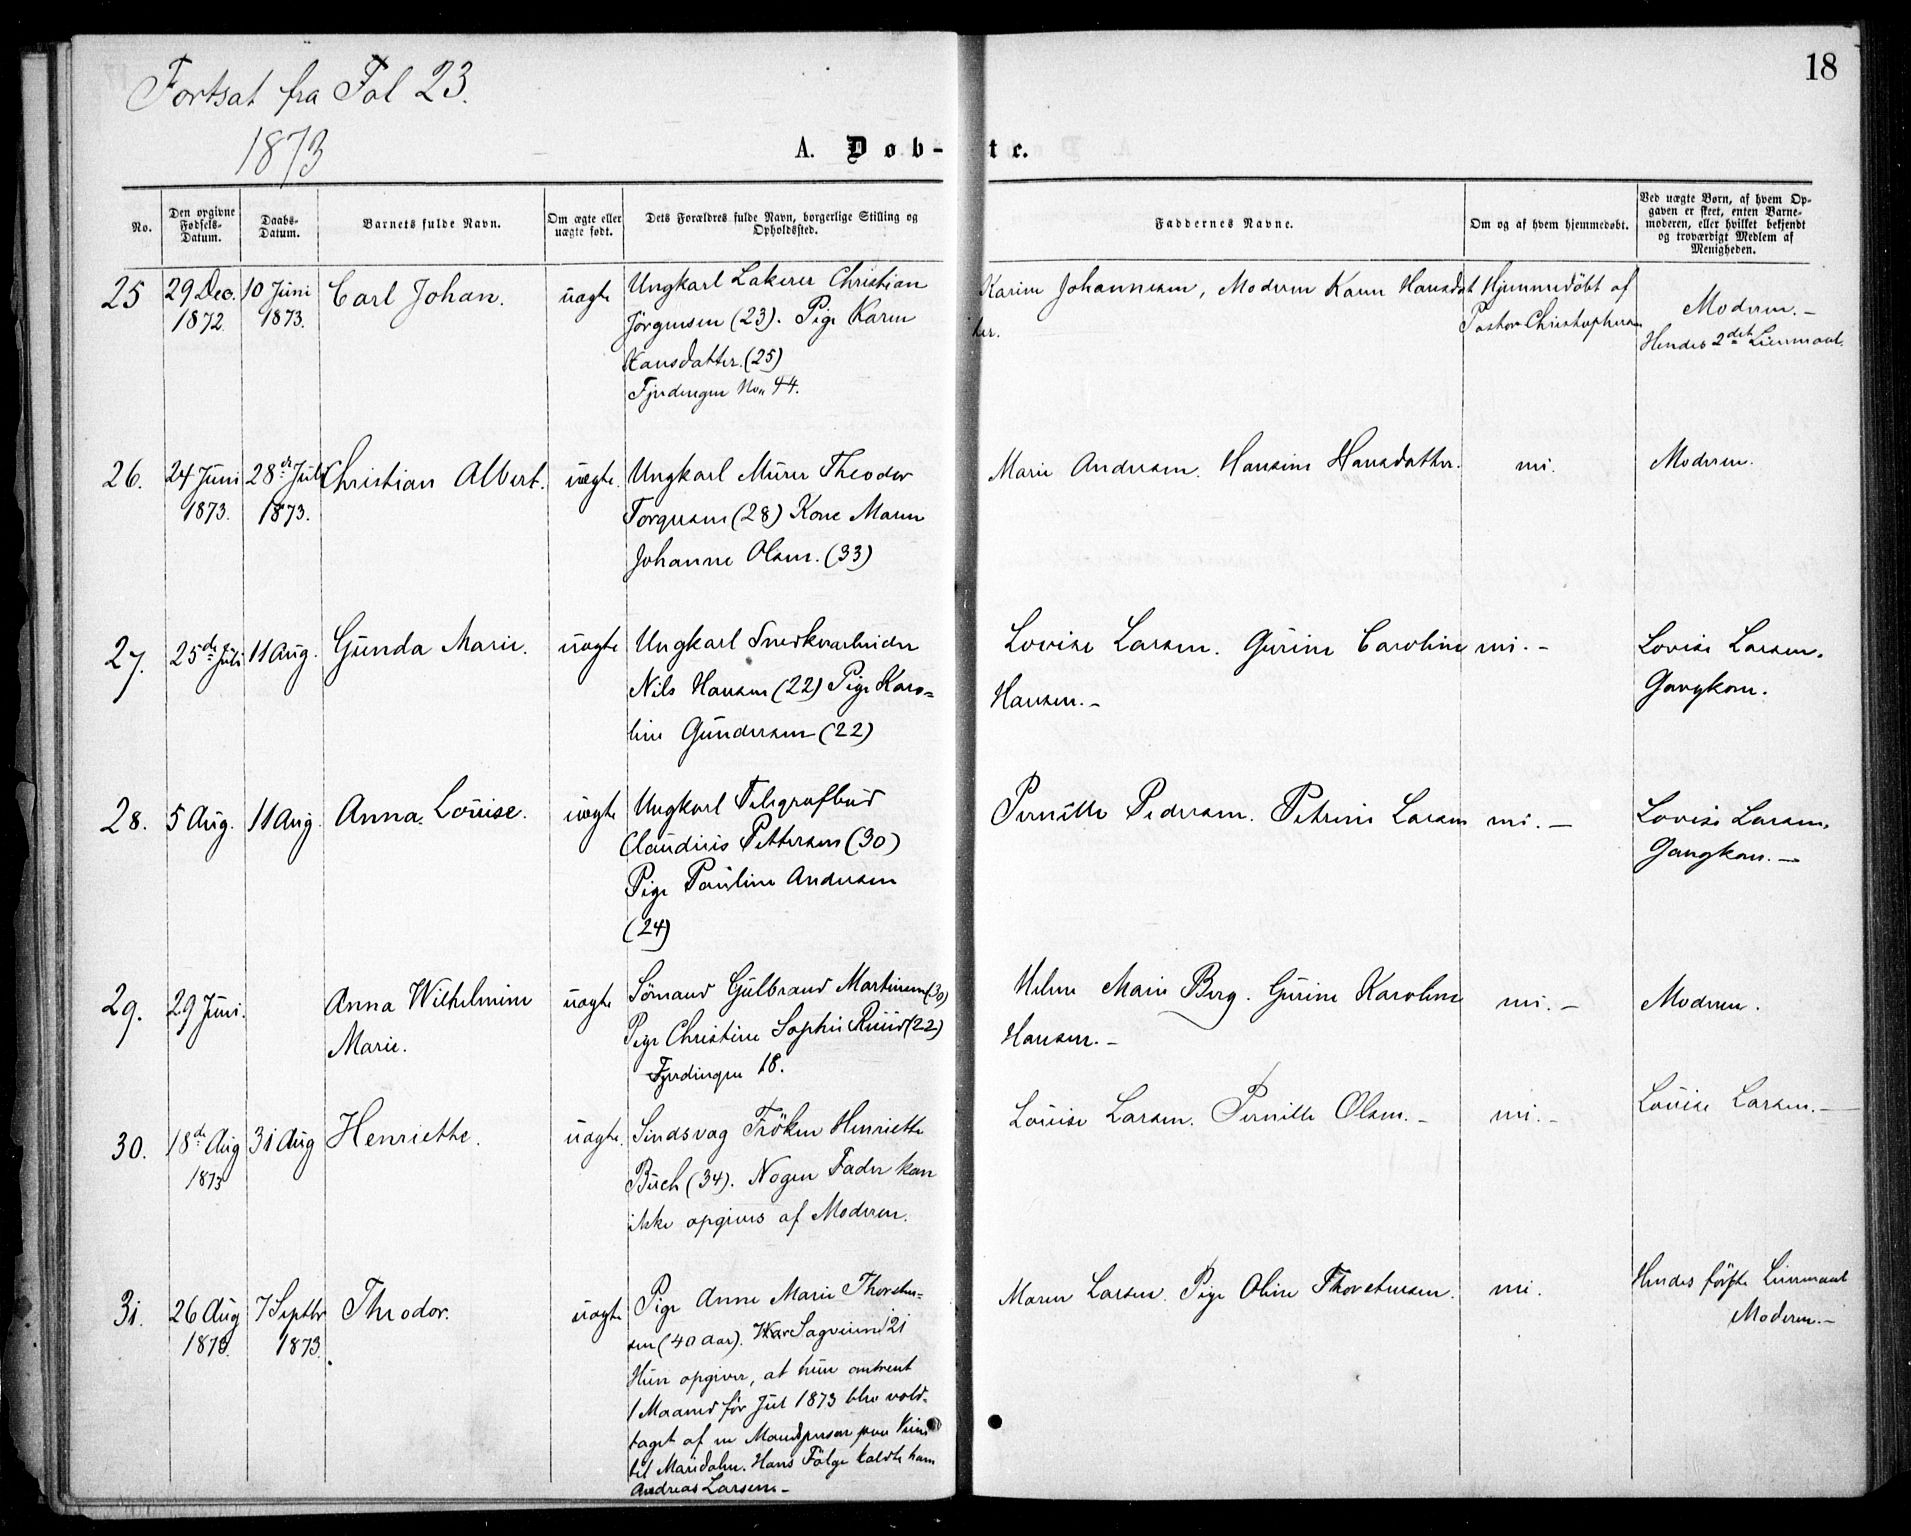 Fortsat fra Fol 23.
1873
18
A. Døb-te.
No.
Den opgivne Fødsels-Datum.
Daabs-Datum.
Barnets fulde Navn.
Om ægte eller uægte født.
Dets Forældres fulde Navn, borgerlige Stilling og Opholdssted.
Faddernes Navne.
Om og af hvem hjemmedøbt.
Ved uægte Børn, af hvem Opgaven er skeet, enten Barnemoderen, eller hvilket bekjendt og troværdigt Medlem af Menigheden.
25 29 Dec. 10 Juni Carl Johan. uægte Ungkarl Lakerer Christian
1872. 1873. Jørgensen (23). Pige Karen
Hansdatter. (25)
Fjerdingen No. 44.
Karine Johannesen, Moderen Karen Hansdat
ter.
Hjemmedöbt af
Pastor Christophersen
Moderen.-
Hendes 2det Leiermaal.
26. 24 Juni 28de Juli Christian Albert. uægte. Ungkarl Murer Theodor
1873. 1873. Torgersen (28) Kone Maren
Johanne Olsen. (33)
Marie Andersen. Hansine Hansdatter. nei. Moderen.
27. 25de Juli 11 Aug. Gunda Marie. uægte Ungkarl Snedkerarbeider
Nils Hansen (22) Pige Karo-
line Gundersen (22)
Lovise Larsen. Gurine Caroline nei.- Lovise Larsen.
Hansen.- Gangkone.
28. 5 Aug. 11 Aug. Anna Louise. uægte Ungkarl Telegrafbud
Claudius Pettersen (30)
Pige Pauline Andersen
(24)
Pernille Pedersen. Petrine Larsen nei.- Lovise Larsen.
Gangkone.-
29. 29 Juni. Anna Wilhelmine uægte Sömand Gulbrand Martinsen (30)
Marie. Pige Christine Sophie Ruud (22)
Fjerdingen 18.
Helene Marie Berg. Gurine Karoline nei.- Moderen.
Hansen.-
30. 18de Aug 31 Aug Henriette. uægte. Sindsvag Fröken Henriette
1873 Buch (34). Nogen Fader kan
ikke opgives af Moderen.
Louise Larsen. Pernille Olsen.- nei.- Louise Larsen.-
31. 26 Aug 7 Septbr Theodor. uægte Pige Anne Marie Thorsten-
1873. 1873. sen (40 Aar). Sagveien 21
Hun opgiver, at hun omtrent
1 Maaned før Jul 1873 blev vold-
taget af en Mandsperson paa Veien
til Maridalen. Hans Fölge kaldte ham
Andreas Larsen.-
Maren Larsen. Pige Oline Thorstensen. nei. Hendes förste Leiermaal
Moderen.-